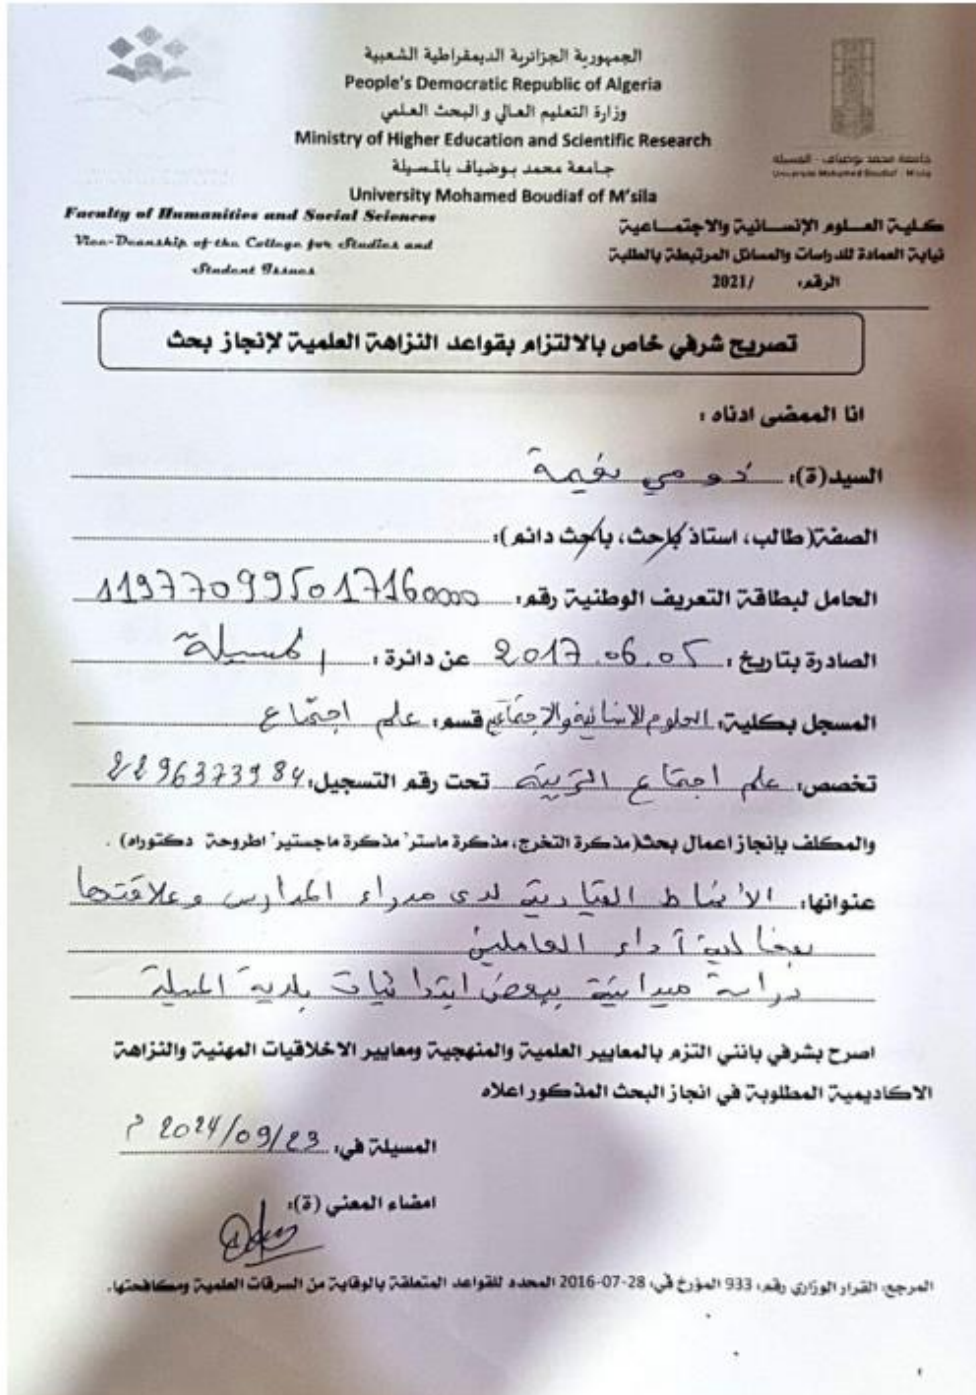 الجمهورية الجزائرية الديمقراطية الشعبية
People's Democratic Republic of Algeria
وزارة التعليم العالي و البحث العلمي
Ministry of Higher Education and Scientific Research
جامعة محمد بوضياف بالمسيلة
University Mohamed Boudiaf of M'sila
جامعة محمد بوضياف - المسيلة
Université Mohamed Boudiaf - M'sila
Faculty of Humanities and Social Sciences
Vice-Deanship of the College for Studies and
Student Issues
كلية العلوم الإنسانية والاجتماعية
نيابة العمادة للدراسات والمسائل المرتبطة بالطلبة
الرقم: /2021
تصريح شرفي خاص بالالتزام بقواعد النزاهة العلمية لإنجاز بحث
انا الممضى ادناه :
السيد(ة): نعيمة
الصفة(طالب، استاذ باحث، باحث دائم):
الحامل لبطاقة التعريف الوطنية رقم: 119770995017160000
الصادرة بتاريخ : 2017.06.05 عن دائرة : المسيلة
المسجل بكلية: العلوم الإنسانية والاجتماعية قسم: علم اجتماع
تخصص: علم اجتماع التربية تحت رقم التسجيل: 2296373984
والمكلف بإنجاز اعمال بحث(مذكرة التخرج، مذكرة ماستر' مذكرة ماجستير' اطروحة دكتوراه) .
عنوانها: الأنماط القيادية لدى مدراء المدارس وعلاقتها
بفعالية أداء العاملين
دراسة ميدانية ببعض ابتدائيات بلدية المسيلة
اصرح بشرفي بانني التزم بالمعايير العلمية والمنهجية ومعايير الاخلاقيات المهنية والنزاهة
الاكاديمية المطلوبة في انجاز البحث المذكور اعلاه
المسيلة في: 2024/09/23 م
امضاء المعني (ة):
المرجع: القرار الوزاري رقم: 933 المؤرخ في: 28-07-2016 المحدد للقواعد المتعلقة بالوقاية من السرقات العلمية ومكافحتها.